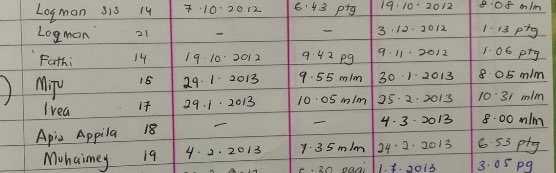 Logman sis 14 7.10.2012 6.43 ptg 19.10.2012 8.08 mlm
Logman 21 - - 3.12.2012 1.13 ptg
Fathi 14 19.10.2012 9.42 pg 9.11.2012 1.06 ptg
Miju 15 29.1.2013 9.55 mlm 30.1.2013 8.05 mlm
Irea 17 29.1.2013 10.05 mlm 25.2.2013 10.31 mlm
Apis Appila 18 - - 4.3.2013 8.00 mlm
Muhaimey 19 4.2.2013 7.35 mlm 24.2.2013 6.53 ptg
1.7.2013 3.05 pg